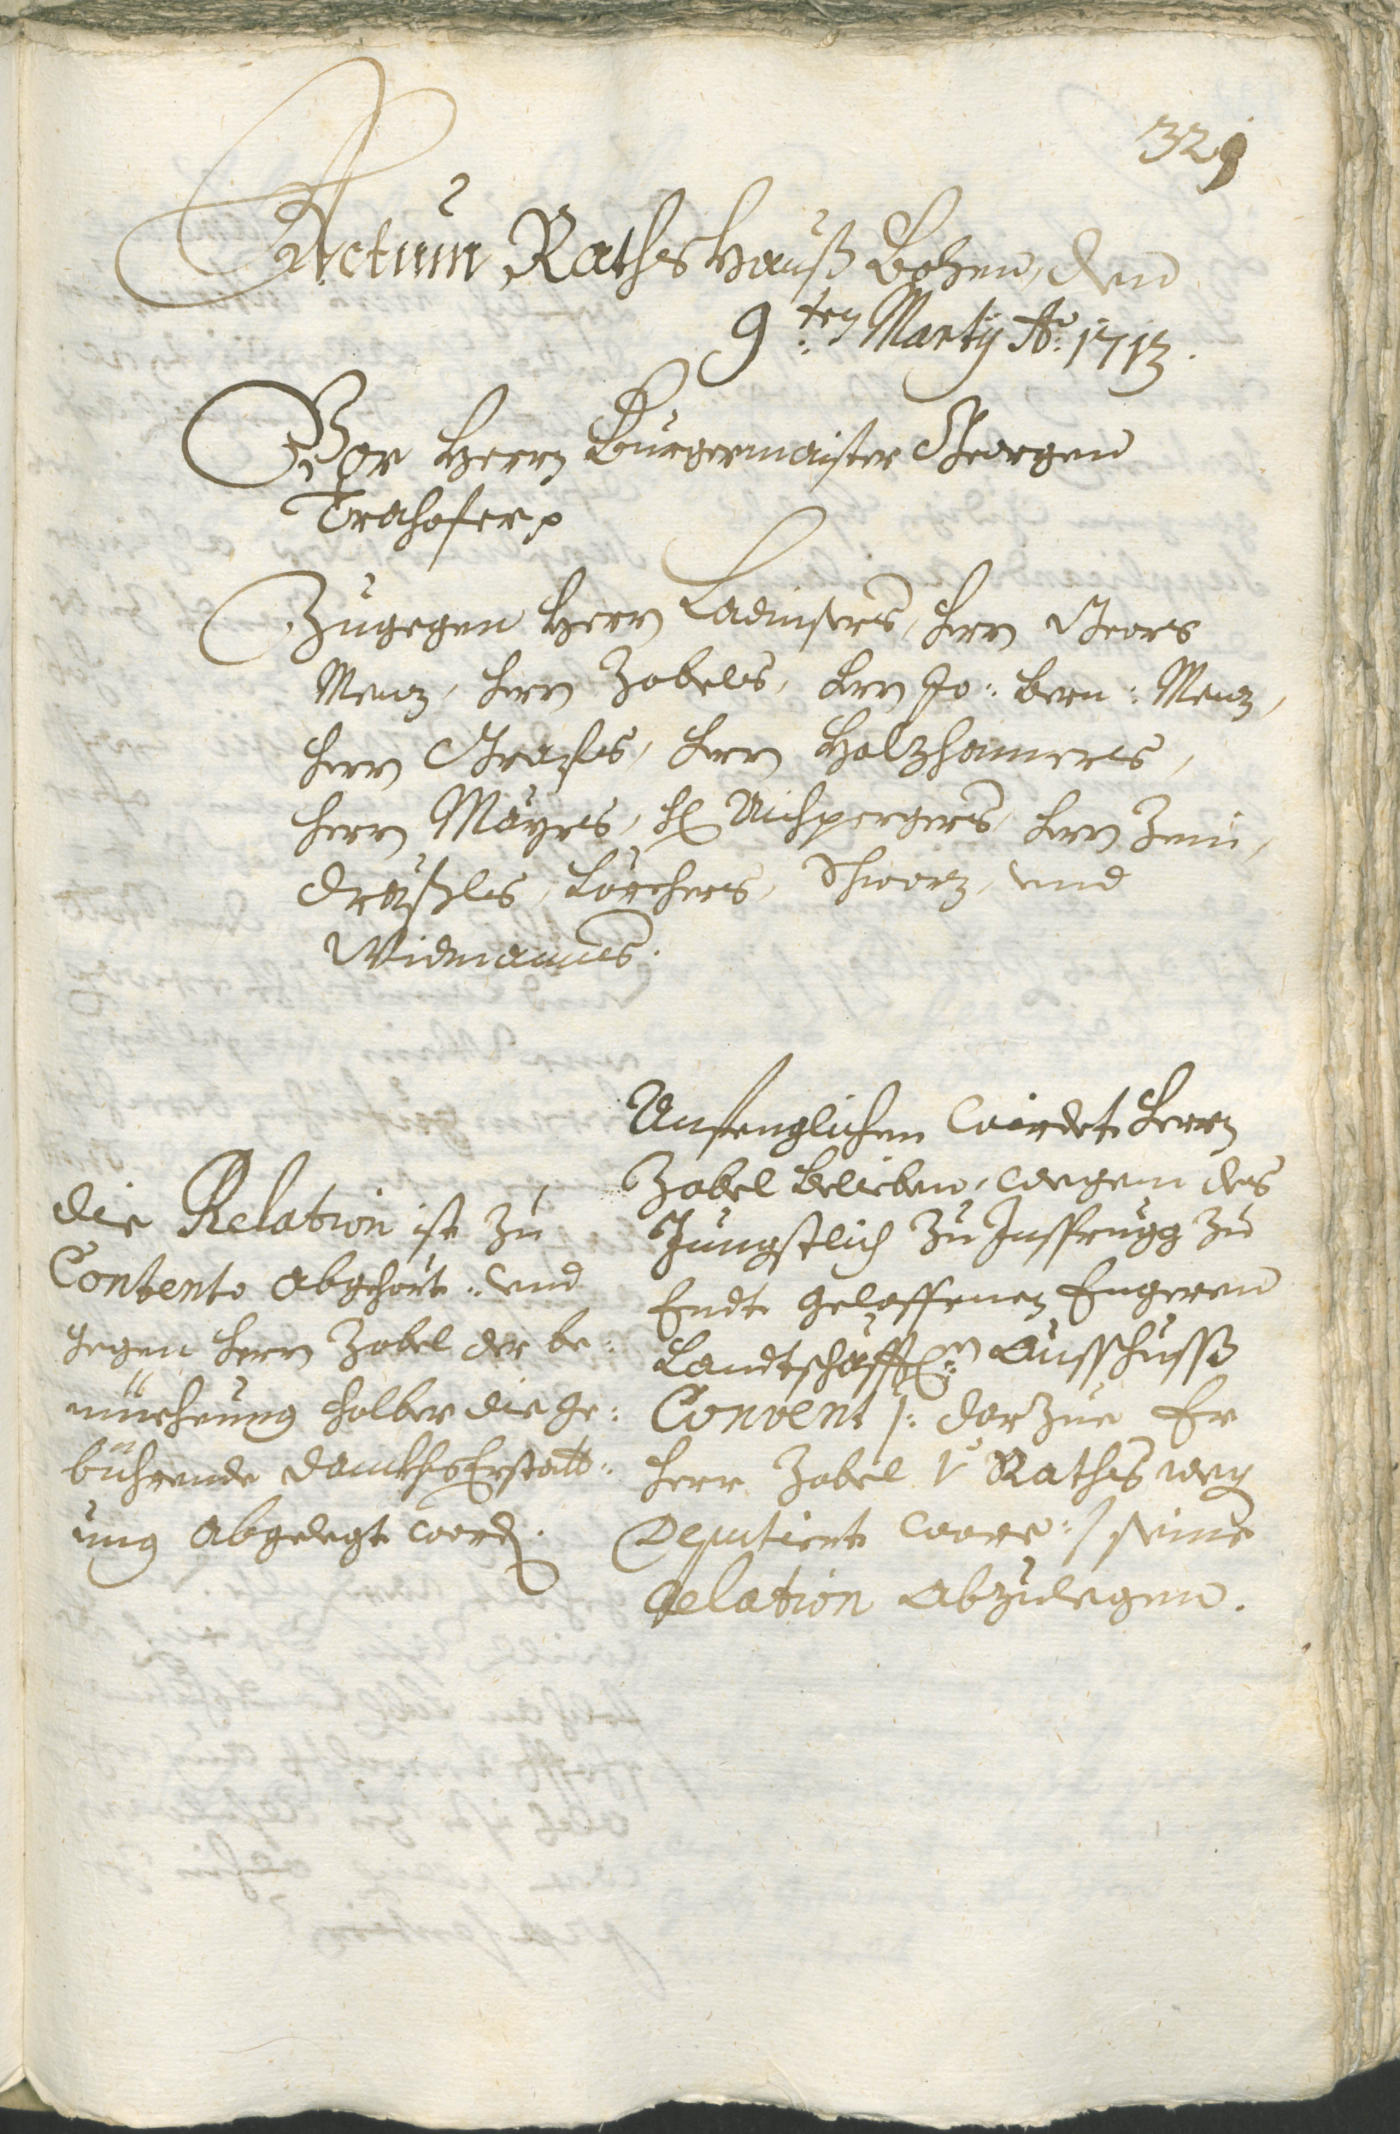 329
Actum Rathshauß Bozen, den
9.ten Martij Ao: 1713.
Vor Herrn Burgermaister Georgen
Trahofer
Zugegen Herrn Ladinsers, herrn Georg
Menz, herrn Zobels, herrn Jo: bern: Menz,
herrn Grafls, herrn Holzhamers,
herrn Mayrs, H: Aichpergers, herrn Zeni,
Dräxls, Lörchers, Schwarz, und
Widmanns.
Anfenglichen wirdet Herrn
Zobel beliben, wegen des
Jungstlich zu Insprugg zu
Endt geloffenen Engeren
Landtschafftl:en Ausschuss
Convent /: darzue Er
Herr Zobel vo Raths weg
Deputiert ware :/ seine
relation abzulegen.
die Relation ist zu
Contento abgehört: und
gegen herrn Zobel der be:
müehung halber die ge:
bührende danckhs Erstatt:
ung abgelegt word.